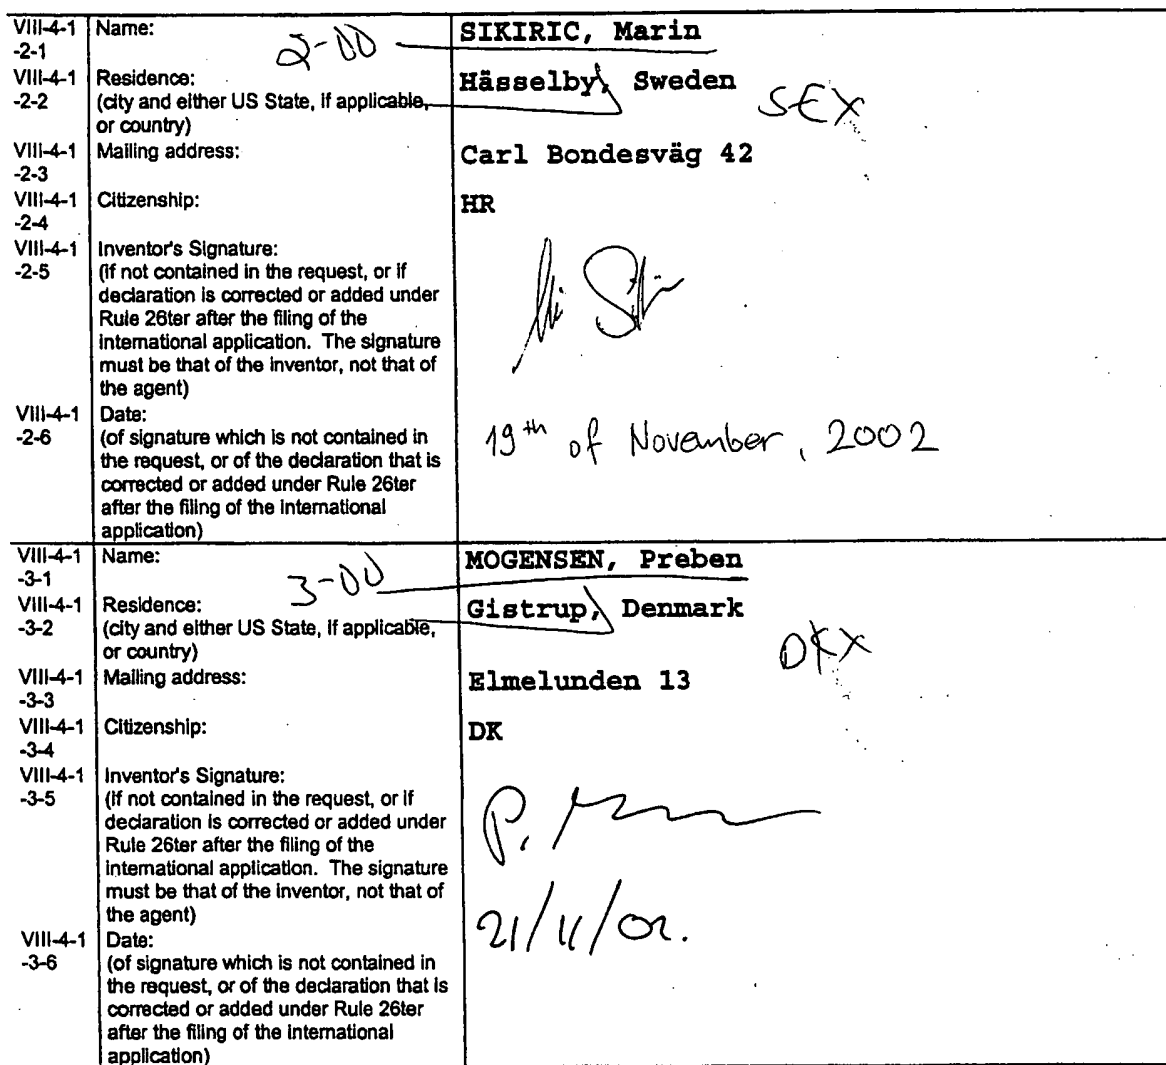 VIII-4-1 Name: SIKIRIC, Marin
-2-1 2-00
VIII-4-1 Residence: Hässelby, Sweden
-2-2 (city and either US State, if applicable, SEX
or country)
VIII-4-1 Mailing address: Carl Bondesväg 42
-2-3
VIII-4-1 Citizenship: HR
-2-4
VIII-4-1 Inventor's Signature:
-2-5 (if not contained in the request, or if
declaration is corrected or added under
Rule 26ter after the filing of the
international application. The signature
must be that of the inventor, not that of
the agent)
VIII-4-1 Date:
-2-6 (of signature which is not contained in 19th of November, 2002
the request, or of the declaration that is
corrected or added under Rule 26ter
after the filing of the international
application)
VIII-4-1 Name: MOGENSEN, Preben
-3-1 3-00
VIII-4-1 Residence: Gistrup, Denmark
-3-2 (city and either US State, if applicable, DKX
or country)
VIII-4-1 Mailing address: Elmelunden 13
-3-3
VIII-4-1 Citizenship: DK
-3-4
VIII-4-1 Inventor's Signature:
-3-5 (if not contained in the request, or if P.
declaration is corrected or added under
Rule 26ter after the filing of the
international application. The signature
must be that of the inventor, not that of
the agent) 21/11/02.
VIII-4-1 Date:
-3-6 (of signature which is not contained in
the request, or of the declaration that is
corrected or added under Rule 26ter
after the filing of the international
application)